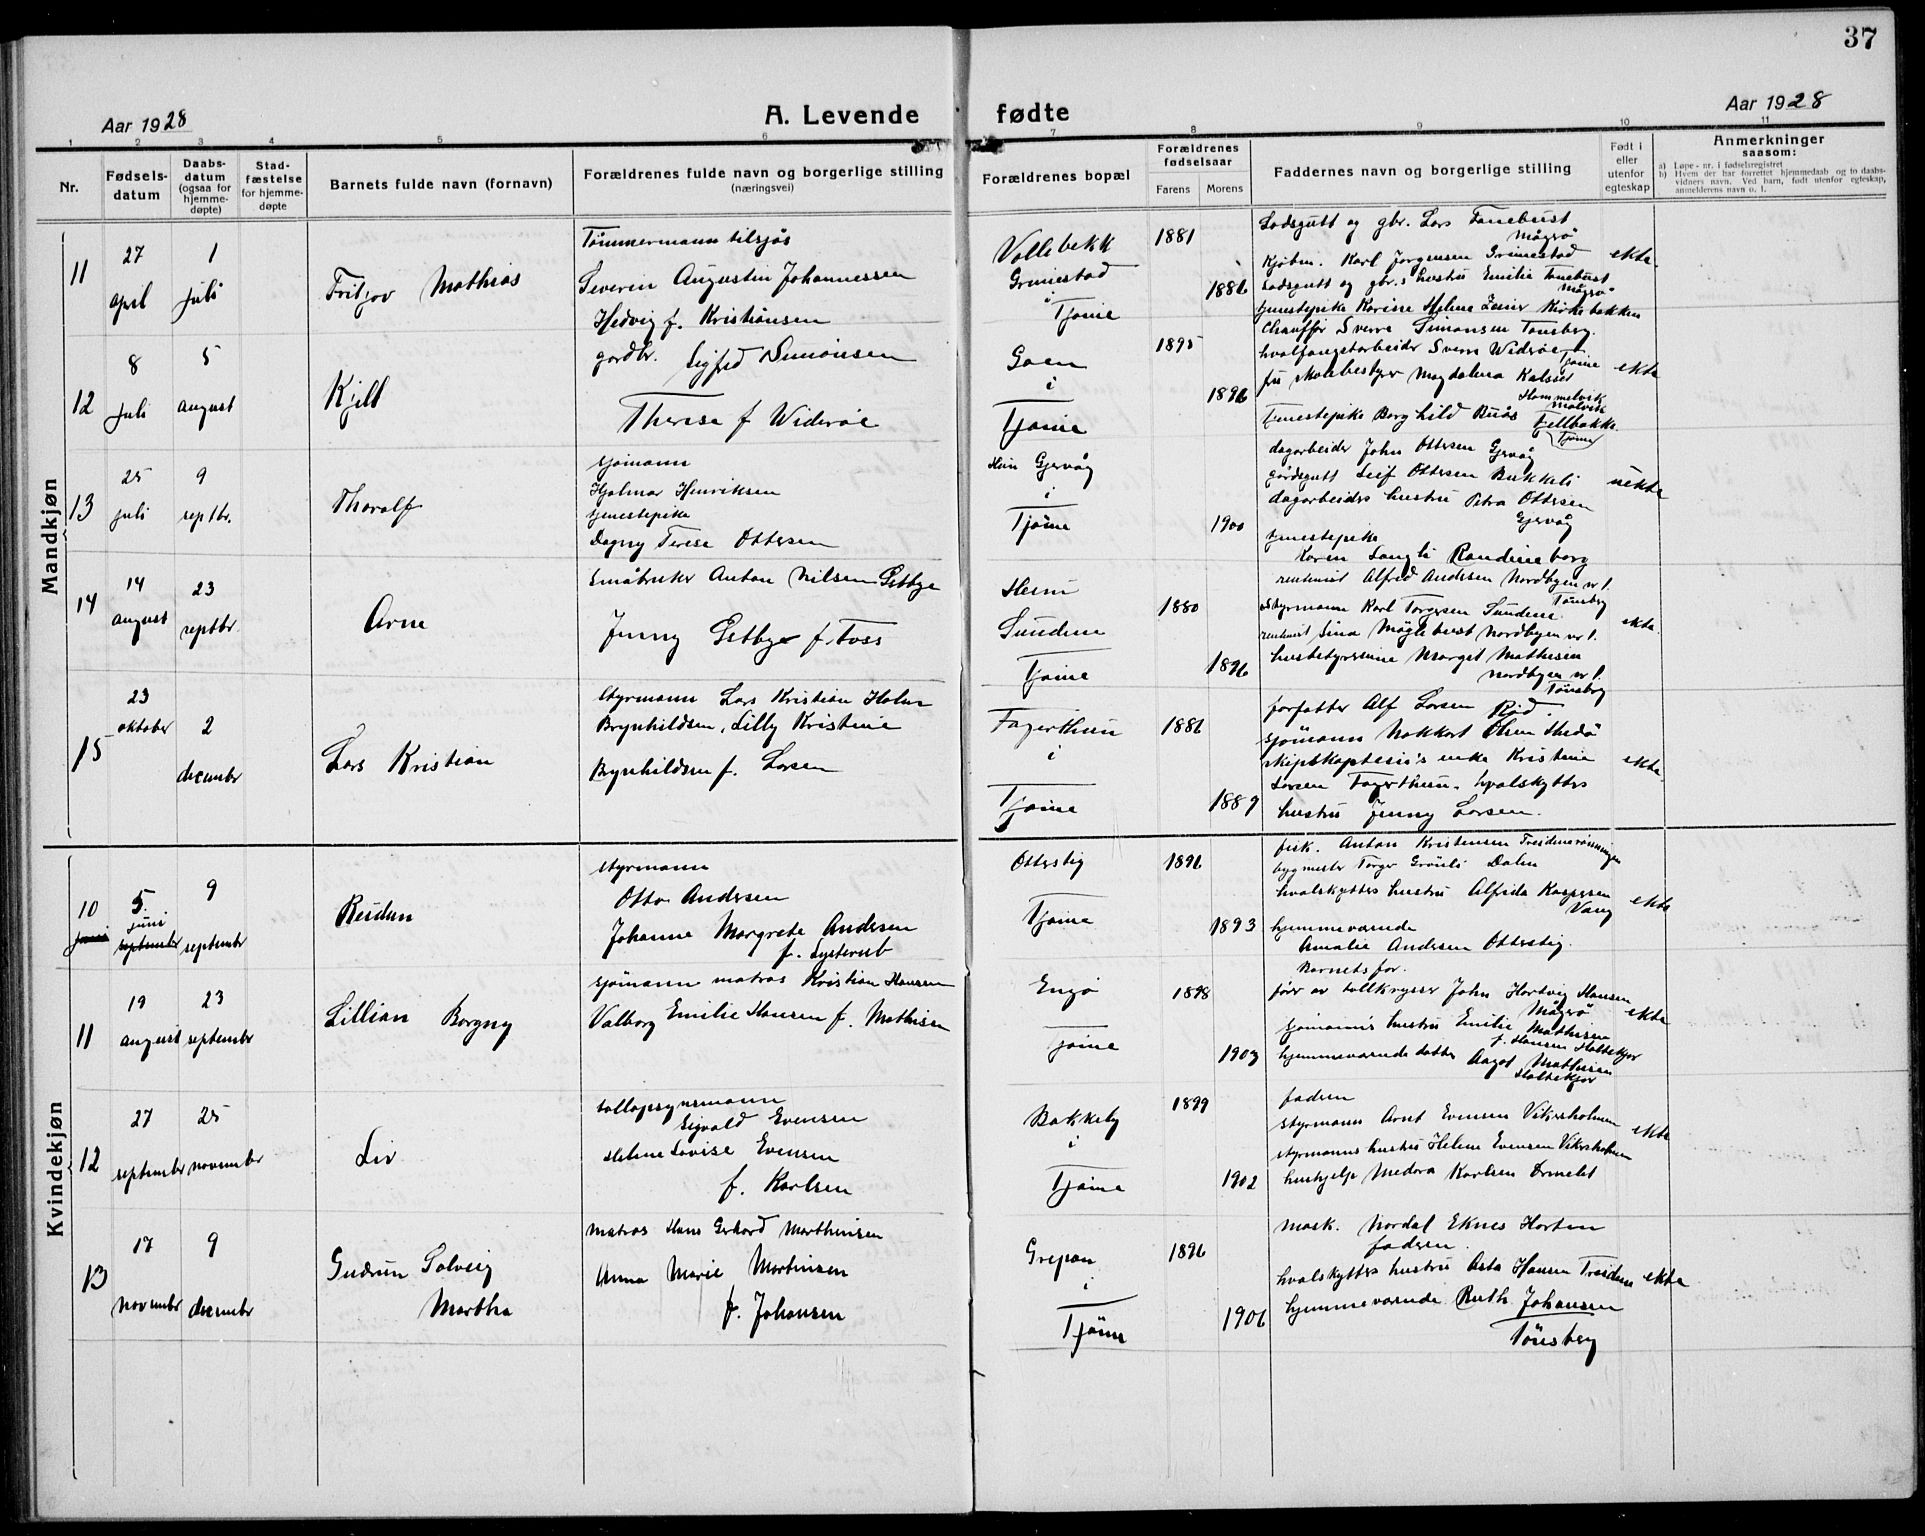 37
Aar 1928
A. Levende fødte
Aar 1928
1 2 3 4 5 6 7 8 9 10 11
Nr.
Fødsels-
datum
Daabs-
datum
(ogsaa for
hjemme-
døpte)
Stad-
fæstelse
for hjemme-
døpte
Barnets fulde navn (fornavn)
Forældrenes fulde navn og borgerlige stilling
(næringsvei)
Forældrenes bopæl
Forældrenes
fødselsaar
Farens
Morens
Faddernes navn og borgerlige stilling
Født i
eller
utenfor
egteskap
Anmerkninger
saasom:
a) Løpe-nr. i fødselsregistret
b) Hvem der har forrettet hjemmedaab og to daabs-
vidners navn. Ved barn, født utenfor egteskap,
anmelderens navn o. l.
Mandkjøn
11
27
april
1
juli
Fritjov Mathias
Tømmermann tilsjøs
Severin Augustin Johannessen
Hedvig f. Kristiansen
Vollebekk
Grimestad
i
Tjøme
1881
1886
Lodsgutt og gbr. Lars Tanebust
Mågerø
Kjøbm. Karl Jørgensen Grimestad
Lodsgutt og gbr.s hustru Emilie Tanebust
Mågerø
tjenestepike Karine Helene Zeiner Kirkebakken
ekte.
12
8
juli
5
august
Kjell
gardbr. Sigfred Simonsen
Therese f Widerøe
Goen
i
Tjøme
1895
1896
Chauffør Sverre Simonsen Tønsberg.
hvalfangstarbeider Sverre Widerøe Tjøme
fru skolebestyrer Magdalena Kalseth
Hommelvik
Malvik
Tjenestepike Borghild Buås Fjellbakke
Tjøme
ekte
13
25
juli
9
septbr.
Thoralf
sjømann
Hjalmar Henriksen
tjenestepike
Dagny Terese Ottersen
Hun Gjervåg
i
Tjøme
1900
dagarbeider John Ottersen Gjervåg
gårdsgutt Leif Ottersen Bukkeli
dagarbeiders hustru Petra Ottersen
Gjervåg
tjenestepike
Karen Langli Randineborg
uekte
14
14
august
23
septbr.
Arne
Småbruker Anton Nilsen Gitbye
Jenny Gitbye f. Foss
Heim
Sundene
Tjøme
1880
1896
rentenist Alfred Andersen Nordbyen nr 1.
Tønsberg
styrmann Karl Torgersen Sundene
rentenist Lina Møglebust Nordbyen nr 1.
husbestyrerinne Margit Mathisen
Nordbyen nr 1.
Tønsberg
ekte.
15
23
oktober
2
decembr
Lars Kristian
styrmann Lars Kristian Holm
Brynhildsen, Lilly Kristine
Brynhildsen f. Larsen
Fagerthun
i
Tjøme
1886
1889
forfatter Alf Larsen Rød.
sjømann Olsen
skipskaptein's enke Kristine
Larsen Fagerthun. hvalskytters
hustru Jenny Larsen.
ekte
Kvindekjøn
10
5.
juni
9
septembr
Reidun
styrmann
Otto Andersen
Johanne Margrete Andersen
f.
Otterstig
Tjøme
1896
1893
fisk. Anton Kristensen Treidenerønningen
bygmester Torger Grønli Dalen
hvalskytters hustru Alfrida Kaspersen
Vang
hjemmeværende
Amalie Andersen Otterstig.
Barnets far.
ekte
11
19
august
23
septembr
Lillian Borgny
sjømann matros Kristian Hansen
Valborg Emilie Hansen f. Mathisen
Engø
Tjøme
1898
1903
fører av tollkrysser John Hartvig Hansen
Mågerø
sjømann's hustru Emilie Mathisen
f. Hansen Holtekjær
hjemmeværende datter Aagot Mathisen
Holtekjær
ekte
12
27
septembr
25
november
Liv
tollopsynsmann
Sigvald Evensen
Helene Lovise Evensen
f. Karlsen
Bakkeby
i
Tjøme
1899
1902
faderen
styrmann Arnt Evensen Vikersholmen
styrmanns hustru Helene Evensen Vikersholmen
hushjelp Medora Karlsen Ormelet
ekte
13
17
novembr
9
decembr
Gudrun Solveig
Martha
matros Hans Gerhard Marthinsen
Anna Marie Martinsen
f. Johansen
Grepan
i
Tjøme
1896
1906
mask. Nordal Eknes Horten
faderen.
hvalskytters hustru Asta Hansen Treidene
hjemmeværende Ruth Johansen
Tønsberg
ekte